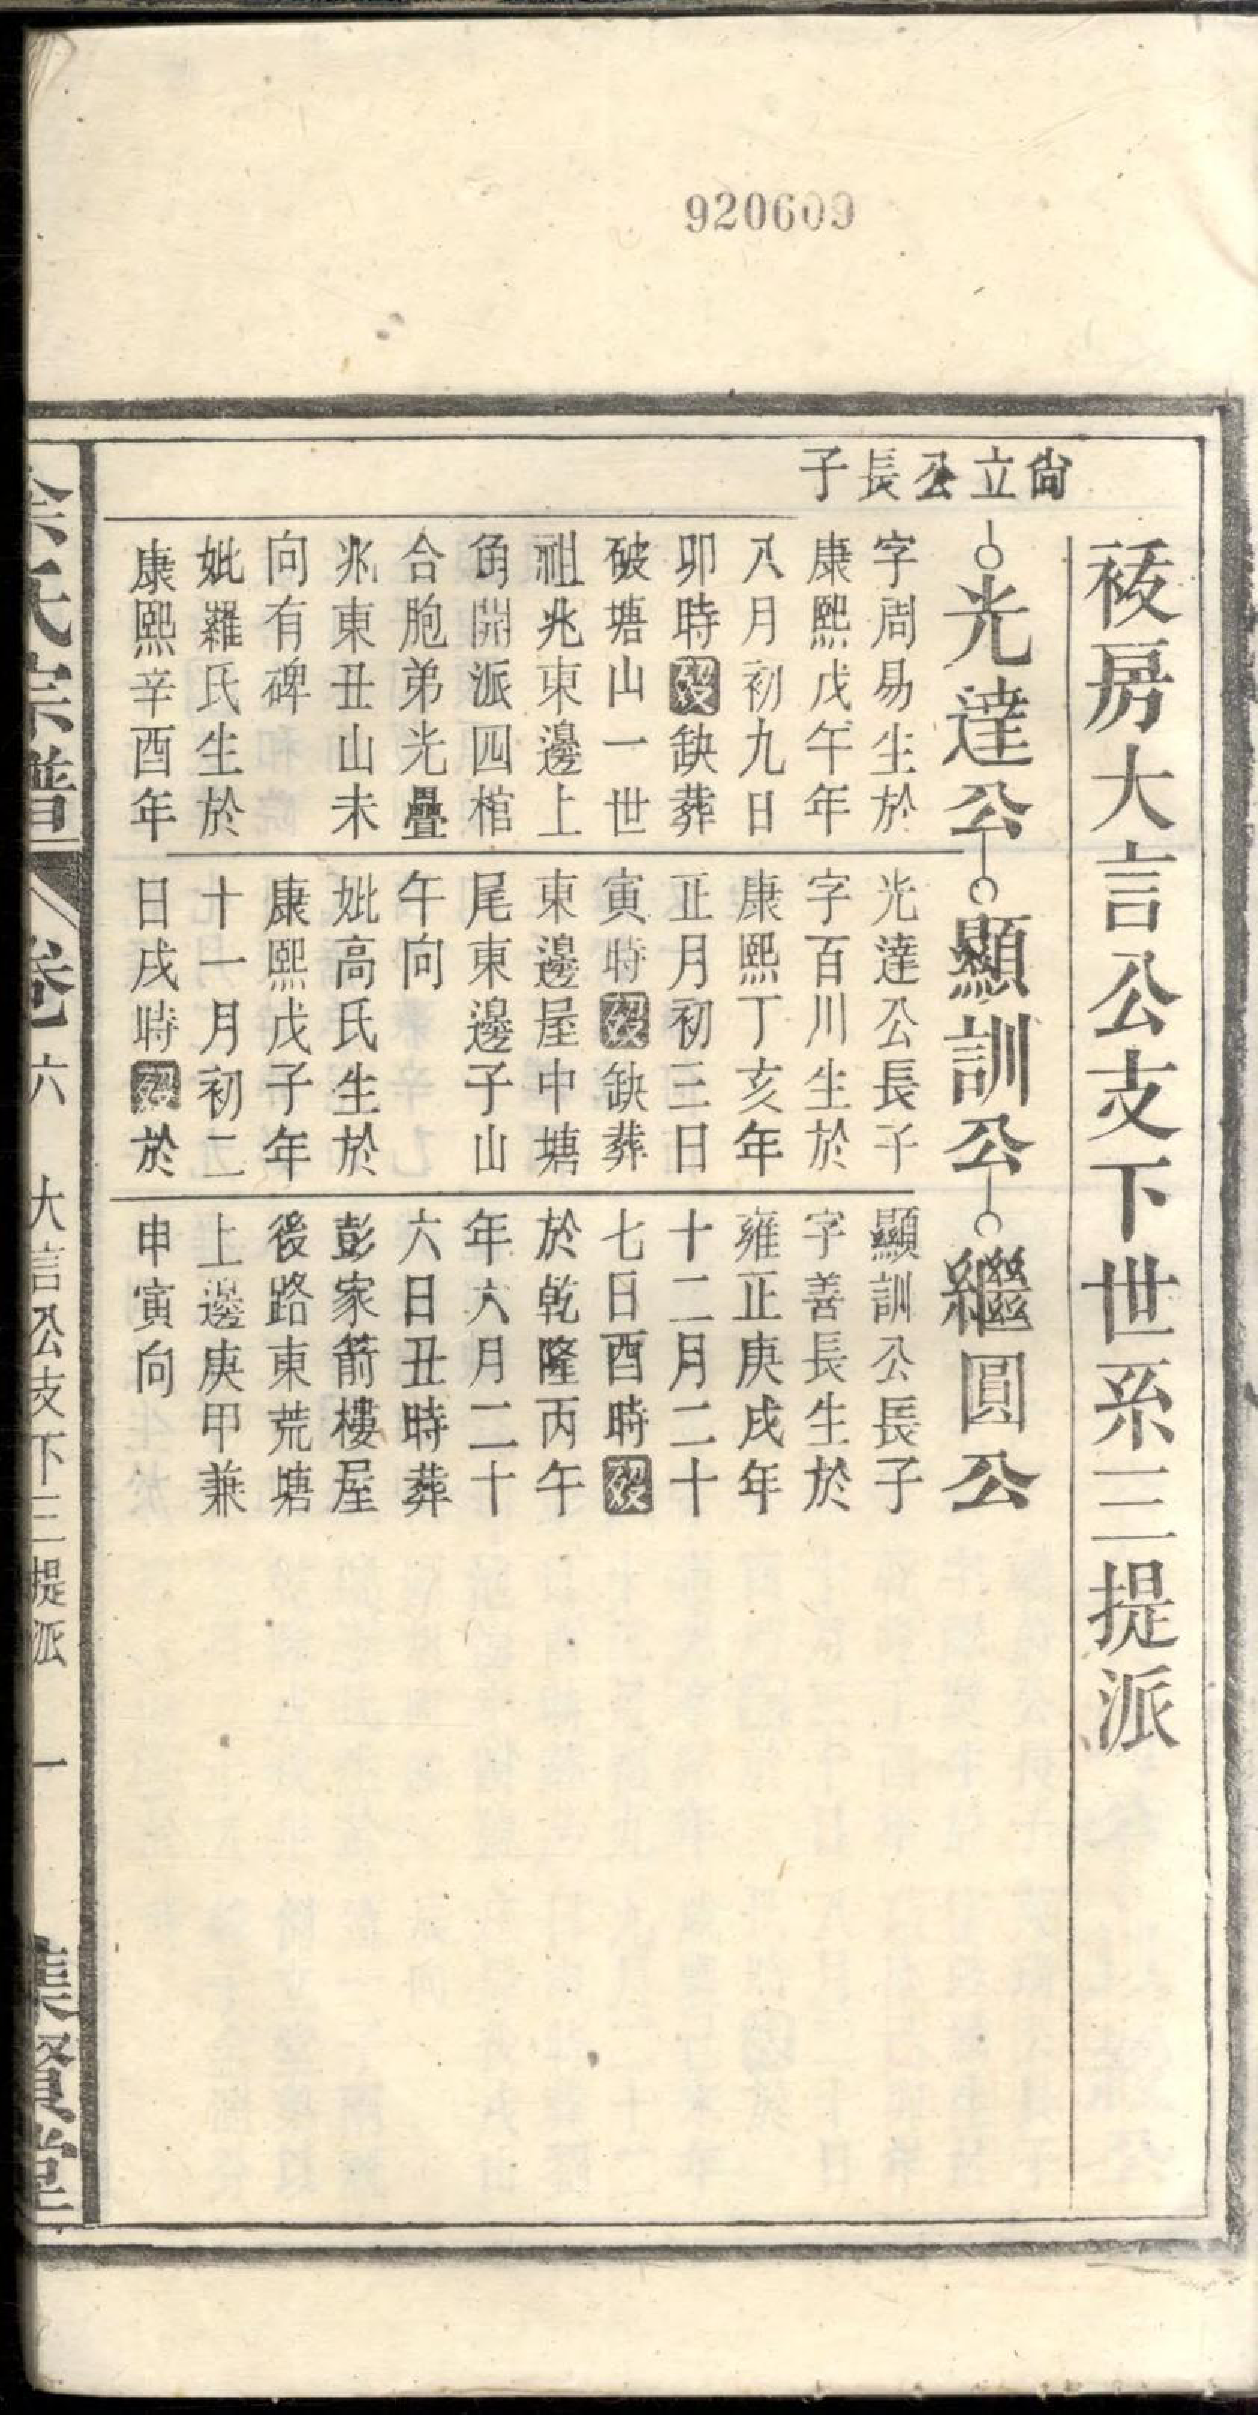 920609
祓房大言公支下世系三提派
尙立公長子
光達公
字周易生於
康熙戊午年
八月初九日
卯時歿缺葬
破塘山一世
祖兆東邊上
角開派四棺
合胞弟光疊
兆東丑山未
向有碑
妣羅氏生於
康熙辛酉年
顯訓公
光達公長子
字百川生於
康熙丁亥年
正月初三日
寅時歿缺葬
東邊屋中塘
尾東邊子山
午向
妣高氏生於
康熙戊子年
十一月初二
日戌時歿於
繼圓公
顯訓公長子
字善長生於
雍正庚戌年
十二月二十
七日酉時歿
於乾隆丙午
年六月二十
六日丑時葬
彭家箭樓屋
後路東荒塘
上邊庚甲兼
申寅向
氏宗譜
卷六
大言公支下三提派
一
集賢堂